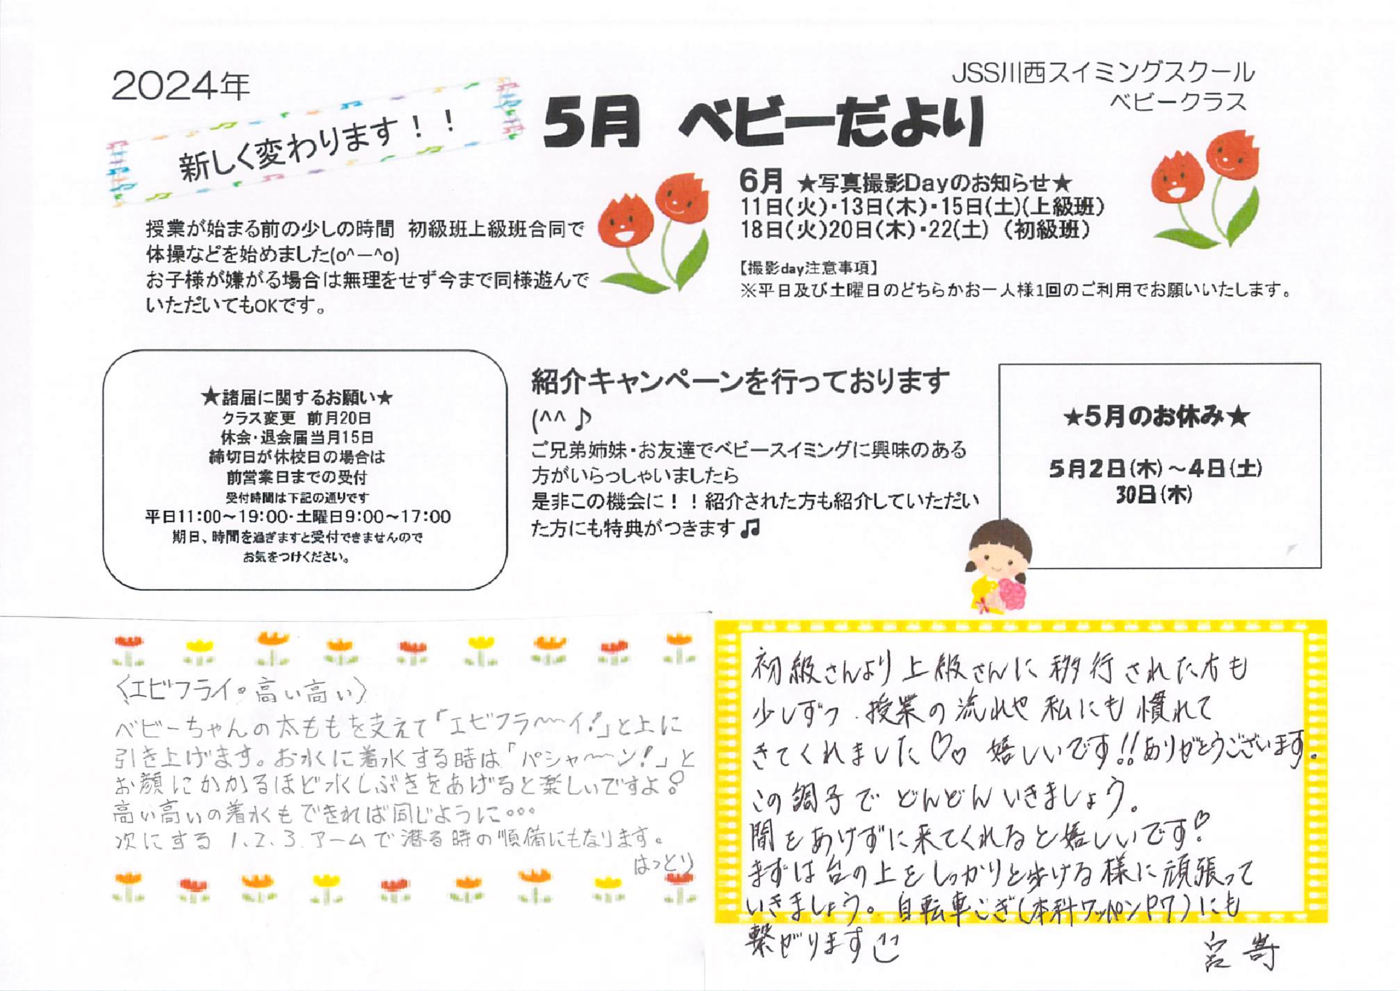 2024年
新しく変わります！！
5月 ベビーだより
JSS川西スイミングスクール
ベビークラス
授業が始まる前の少しの時間 初級班上級班合同で
体操などを始めました(o^ー^o)
お子様が嫌がる場合は無理をせず今まで同様遊んで
いただいてもOKです。
6月 ★写真撮影Dayのお知らせ★
11日(火)・13日(木)・15日(土)(上級班)
18日(火)20日(木)・22(土) (初級班)
【撮影day注意事項】
※平日及び土曜日のどちらかお一人様1回のご利用でお願いいたします。
★諸届に関するお願い★
クラス変更 前月20日
休会・退会届当月15日
締切日が休校日の場合は
前営業日までの受付
受付時間は下記の通りです
平日11:00～19:00・土曜日9:00～17:00
期日、時間を過ぎますと受付できませんので
お気をつけください。
紹介キャンペーンを行っております
(^^♪
ご兄弟姉妹・お友達でベビースイミングに興味のある
方がいらっしゃいましたら
是非この機会に！！紹介された方も紹介していただい
た方にも特典がつきます♫
★5月のお休み★
5月2日(木)～4日(土)
30日(木)
〈エビフライ・高い高い〉
ベビーちゃんの太ももを支えて「エビフラ〜〜イ!」と上に
引き上げます。お水に着水する時は「パシャ〜〜ン!」と
お顔にかかるほど水しぶきをあげると楽しいですよ♀
高い高いの着水もできれば同じように。。。
次にする 1.2.3.アームで潜る時の順備にもなります。
はっとり
初級さんより上級さんに移行された方も
少しずつ、授業の流れや私にも慣れて
きてくれました♡♡ 嬉しいです!!ありがとうございます。
この調子でどんどんいきましょう。
間をあけずに来てくれると嬉しいです!♡
まずは台の上をしっかりと歩ける様に頑張って
いきましょう。自転車こぎ(本科ワッペンP7)にも
繋がります
宮嵜